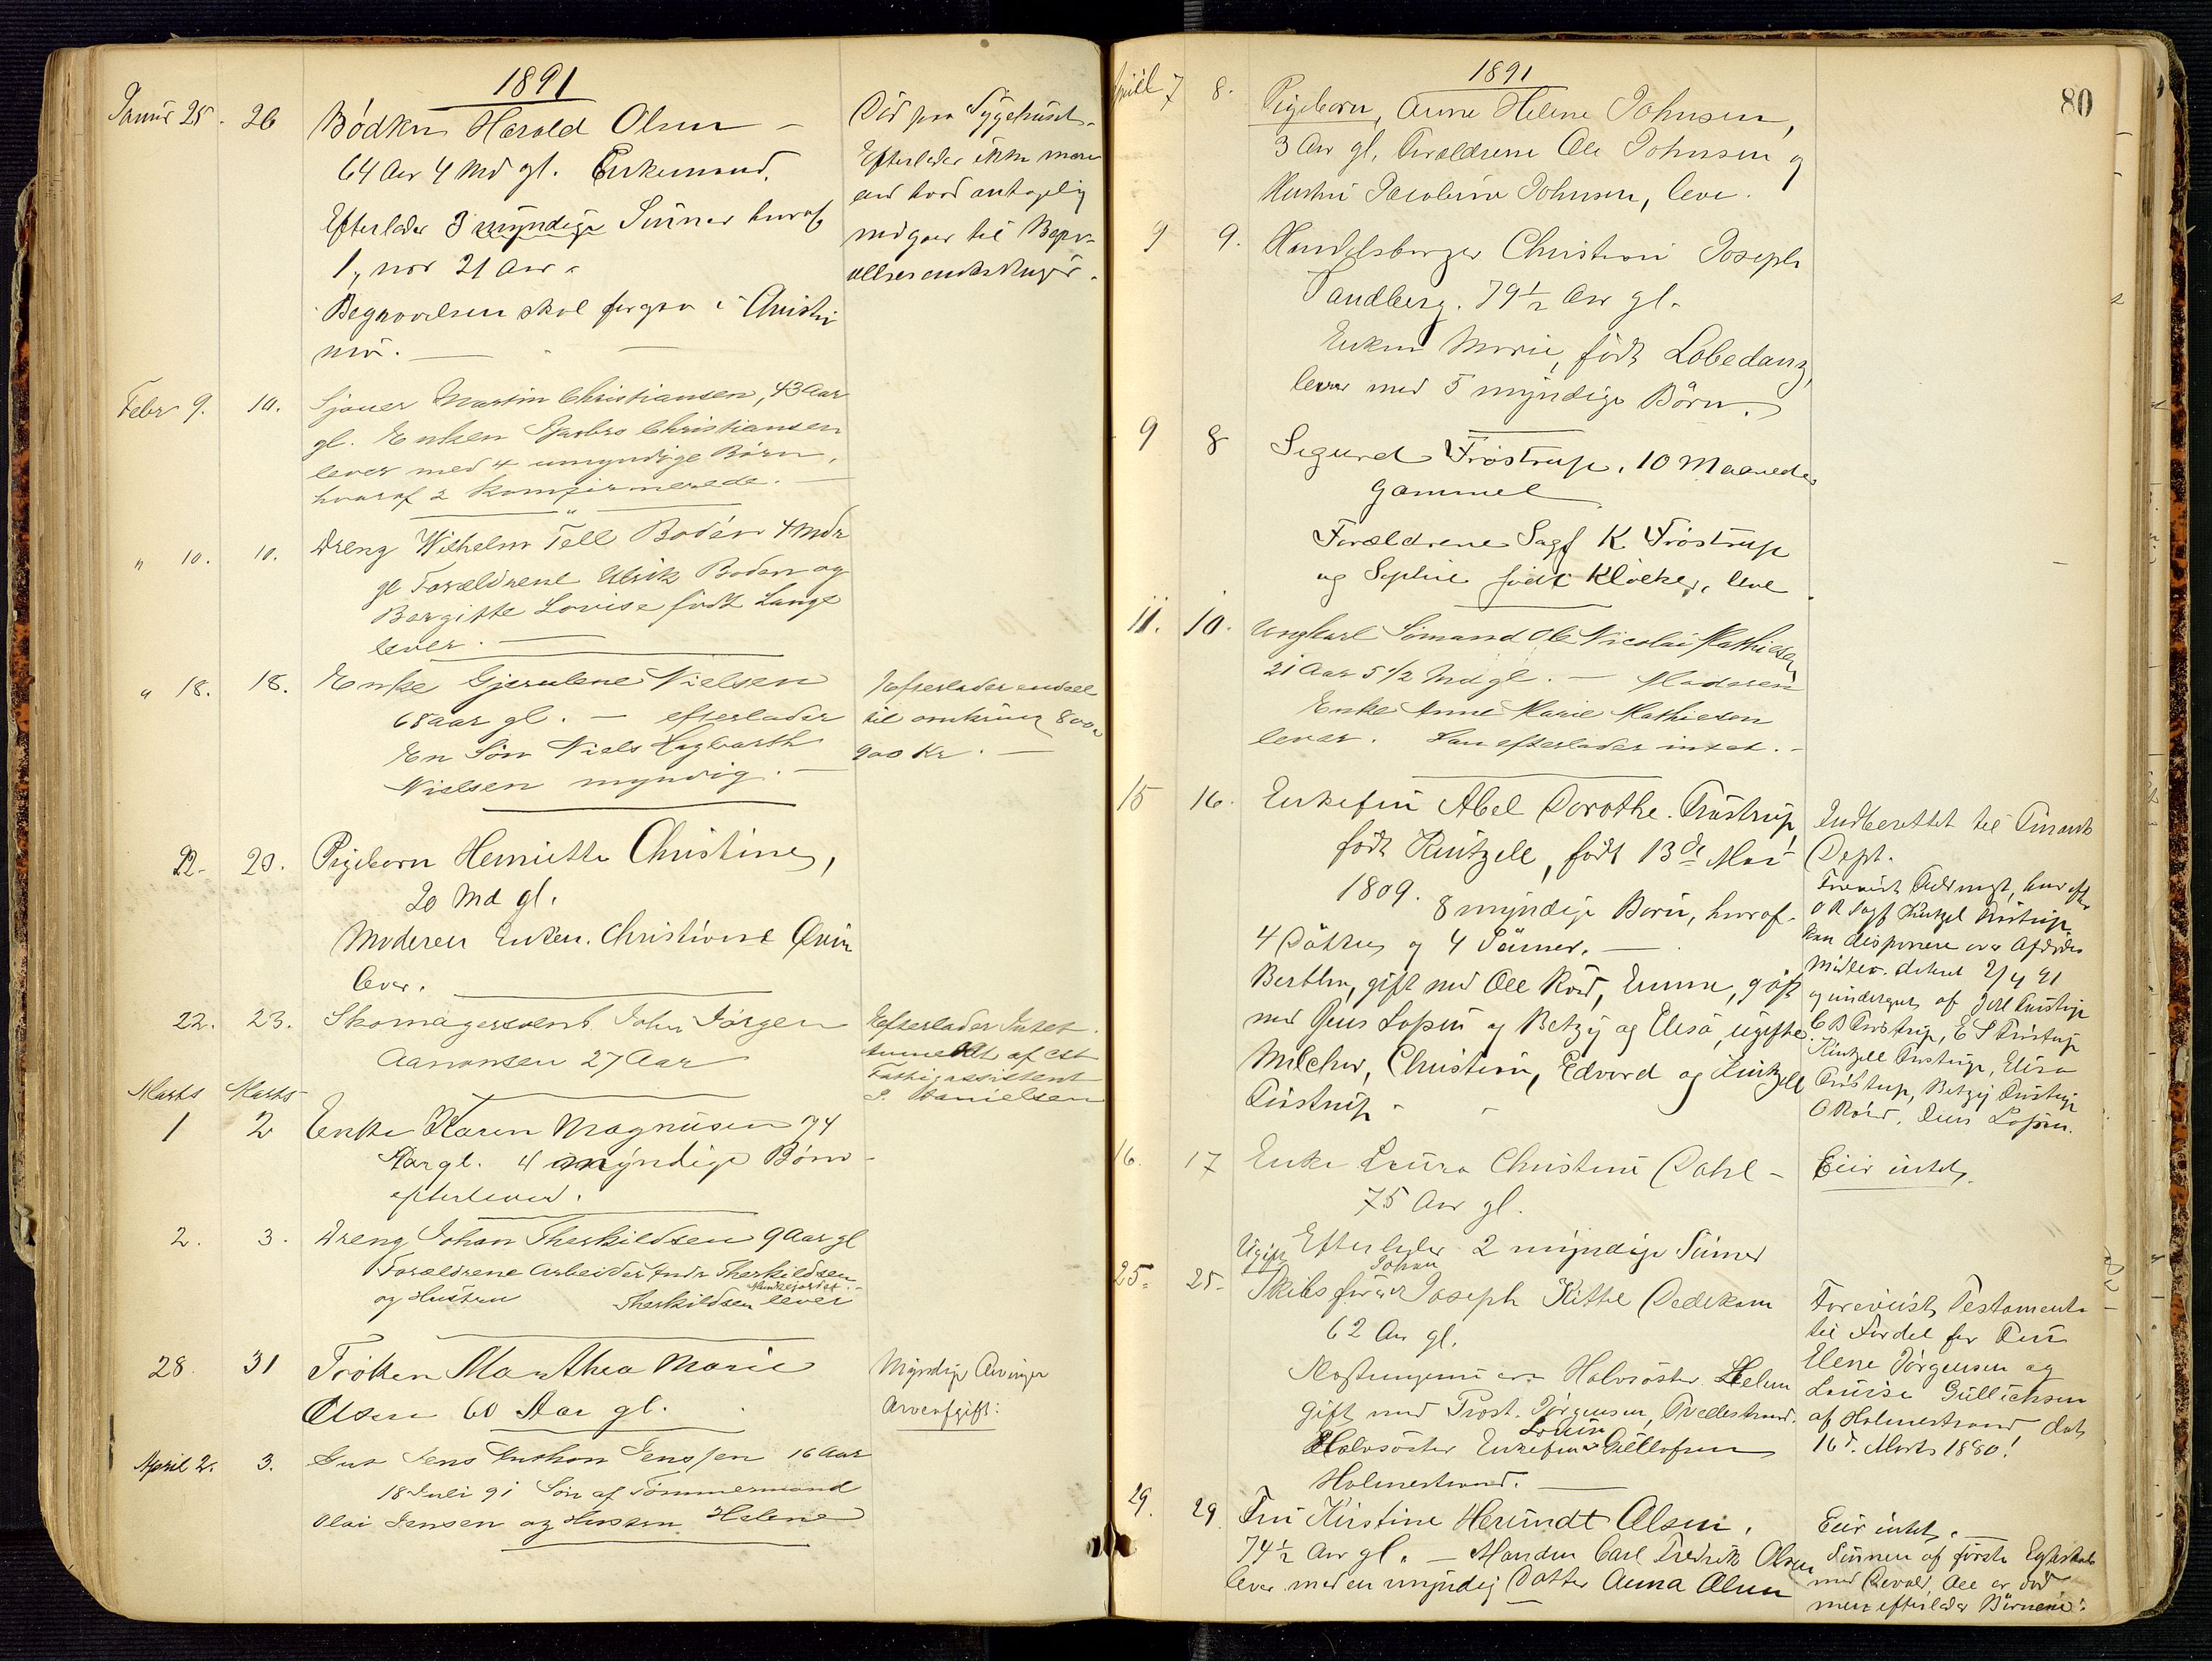 1891
Januar 25. 26 Bödker Harald Olsen –
64 Aar 4 Md gl. Enkemand.
Efterlader 3 myndige Sönner hvoraf
1, nær 21 Aar.
Begravelsen skal foregaa i Christi
nia.
Död paa Sygehuset.
Efterlader ikke mere
end hvad antagelig
medgaar til Begra-
velsesomkostninger.
Febr 9. 10. Sjouer Martin Christiansen, 43 Aar
gl. Enken Christiansen
lever med 4 umyndige Börn,
hvoraf 2 Konfirmerede.
" 10. 10. Dreng Wilhelm Tell Bodén 4 Mdr
gl Forældrene Ulrik Boden og
Bergitte Lovise född Lange
lever.
" 18. 18. Enke Gjerulene Nielsen
68 aar gl. – efterlader
En Sön Niels Hagbarth
Nielsen myndig.
Efterlader endeel
til omkring 800 a
900 Kr. –
22. 23. Pigebarn Henriette Christine,
20 Md gl.
Moderen Enken Christiane
lever.
22. 23. Skomagersvend John Jörgen
Aanonsen 27 Aar
Efterlader Intet.
Anmeldt af
Fattigassistent
Danielsen
Marts Marts
1 2 Enke Karen Magnusen 74
Aar gl. 4 myndige Börn
efterlever.
2. 3. Dreng Johan Therkildsen 9 Aar gl
Forældrene Arbeider Andr Therkildsen
og Hustru Therkildsen lever
28. 31 Fröken Marthea Marie
Olsen 60 Aar gl.
Myndige Arvinger
Arveafgift:
April 2. 3. Gut Jens Anthon Jenssen 16 Aar
18 Juli 91 Sön af Tömmermand
Olai Jensen og Hustru Helene
80
1891
April 7 8. Pigebarn, Anne Helene Johnsen,
3 Aar gl, Forældrene Ole Johnsen og
Hustru Jacobine Johnsen, leve.
9 9. Handelsborger Christian Joseph
Sandberg. 79½ Aar gl.
Enken Marie, född Lobedanz,
lever med 5 myndige Börn.
9 8 Sigurd Fröstrup, 10 Maaneder
Gammel
Forældrene Sagf K Fröstrup
og Sophie född Klöcker, leve
11. 10. Ungkarl Sömand Ole Nicolai Mathiesen
21 Aar 5 1/2 Md gl. – Moderen
Enke Anne Marie Mathiesen
lever. Han efterlader intet. –
15 16. Enkefru Abel Dorothe Fröstrup
född Kintzell, född 13de Mai
1809. 8 myndige Börn, hvoraf
4 Döttre og 4 Sönner. –
gift med Ole Röed, Emma, gift
med Jens Lossius og Betzy og Elisa, ugifte
Melchior, Christian, Edvard og Kintzell
Fröstrup
Indberettet til Finants
Dept.
OR Sagf Kintzel Fröstrup
kan disponere over Afdödes
Midler. 2/4 91
og undergivet af
C B Fröstrup, E S Fröstrup
Kintzell Fröstrup, Elisa
Fröstrup, Betzy Fröstrup
O Röed, Jens Lossius.
16. 17 Enke Laura Christine Dahl –
75 Aar gl.
Efterlader 2 myndige Sönner
Eier intet,
25. 25. Ugift Skibsförer Johan Joseph Kittel Dedekam
62 Aar gl.
Halvsöster Helene
gift med Provst Jörgensen, Tvedestrand.
Halvsöster Enkefru Louise Gullichsen
Holmestrand.
Forevist Testamente
til Fordel for Fru
Elene Jörgensen og
Louise Gullichsen
af Holmestrand dat
16d. Marts 1880!
29. 29 Fru Kirstine Olsen,
74½ Aar gl. – Manden Carl Fredrik Olsen
lever med en myndig Datter Anna Olsen
Eier intet. –
Sönnen af förste Egteskab
med Ole er död
men efterlader Börnene.